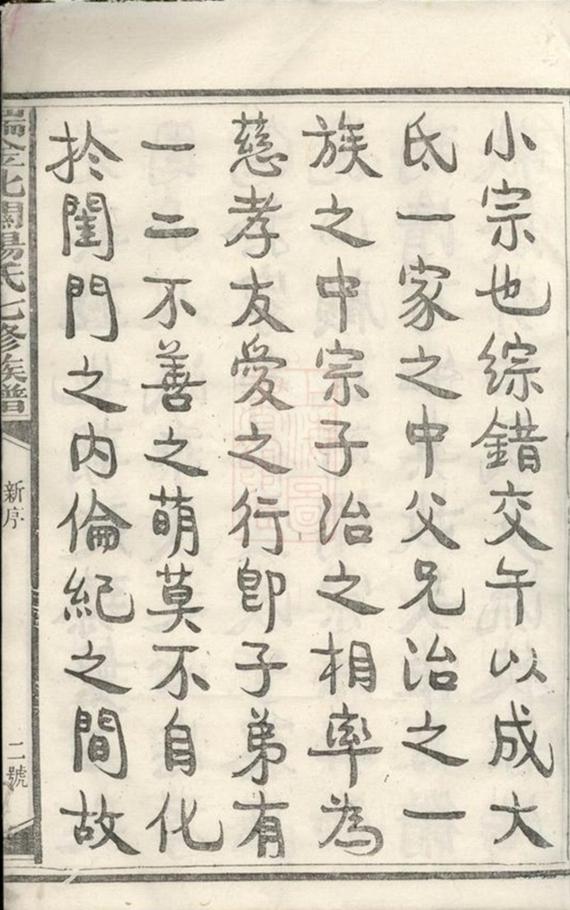 小宗也綜錯交午以成大
氏一家之中父兄治之一
族之中宗子治之相率為
慈孝友愛之行即子弟有
一二不善之萌莫不自化
於閨門之内倫紀之間故
瑞金北關楊氏七修族譜
新序
二號